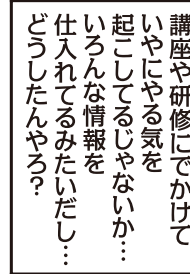 講座や研修にでかけて
いやにやる気を
起こしてるじゃないか…
いろんな情報を
仕入れてるみたいだし…
どうしたんやろ？